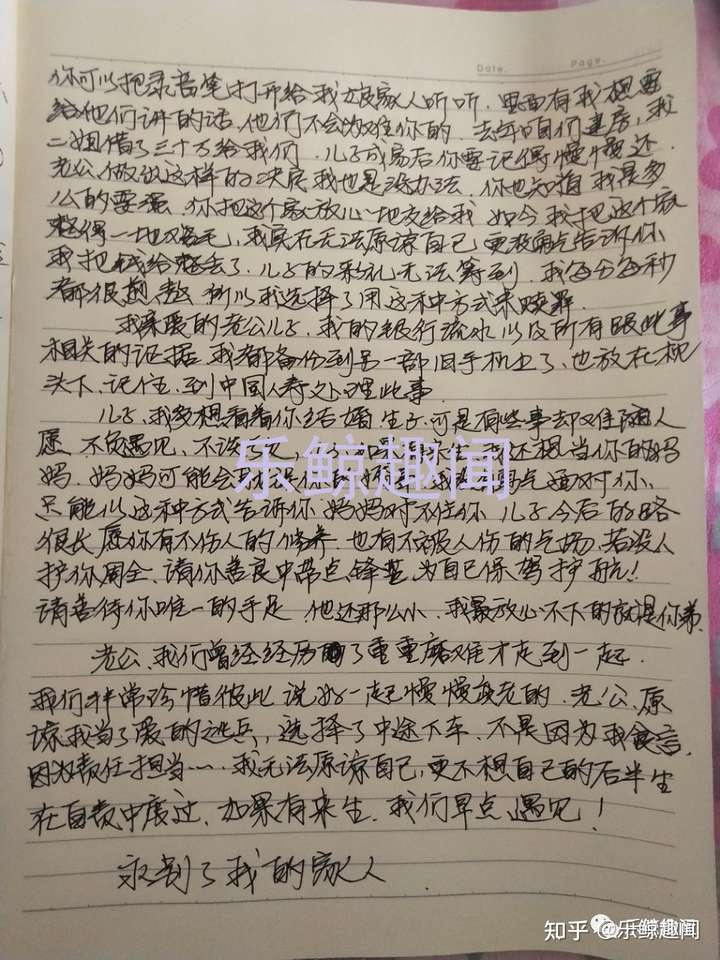 Date. Page.
你可以把录音笔打开给我娘家人听听.里面有我想要
给他们讲的话.他们不会为难你的.去年咱们建房,我
二姐借了三十万给我们.儿子成家后你要记得慢慢还.
老公,做出这样的决定我也是没办法.你也知道我是多
么的要强.你把这个家放心地交给我如今我把这个家
整得一地鸡毛,我实在无法原谅自己,更没勇气告诉你
我把钱给整丢了.儿子的彩礼无法筹到.我每分每秒
都很煎熬.所以我选择了用这种方式来赎罪.
我亲爱的老公儿子.我的银行流水以及所有跟此事
相关的证据我都备份到另一部旧手机上了,也放在枕
头下.记住.到中国人寿处理此事.
儿子,我多想看着你结婚生子.可是有些事却难随人
愿.不负遇见,不谈亏欠,如果有来生我还想当你的妈
妈.妈妈可能会勇气面对你.
只能以这种方式告诉你.妈妈对不住你.儿子今后的路
很长愿你有不伤人的修养.也有不被人伤的气场.若没人
护你周全.请你善良中带点锋芒为自己保驾护航!
请善待你唯一的手足.他还那么小.我最放心不下的就是你弟.
老公,我们曾经经历了重重磨难才走到一起.
我们非常珍惜彼此说好一起慢慢变老的.老公,原
谅我当了爱的逃兵,选择了中途下车.不是因为我食言.
因为责任担当……我无法原谅自己,更不想自己的后半生
在自责中度过.如果有来生.我们早点遇见!
永别了我的家人.
乐鲸趣闻
乐鲸趣闻
知乎 @乐鲸趣闻